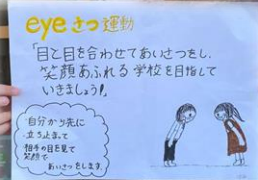 eyeさつ運動
「目と目を合わせてあいさつをし、
笑顔あふれる学校を目指して
いきましょう!」
自分から先に
立ち止まって
相手の目を見て
笑顔で
あいさつをします。